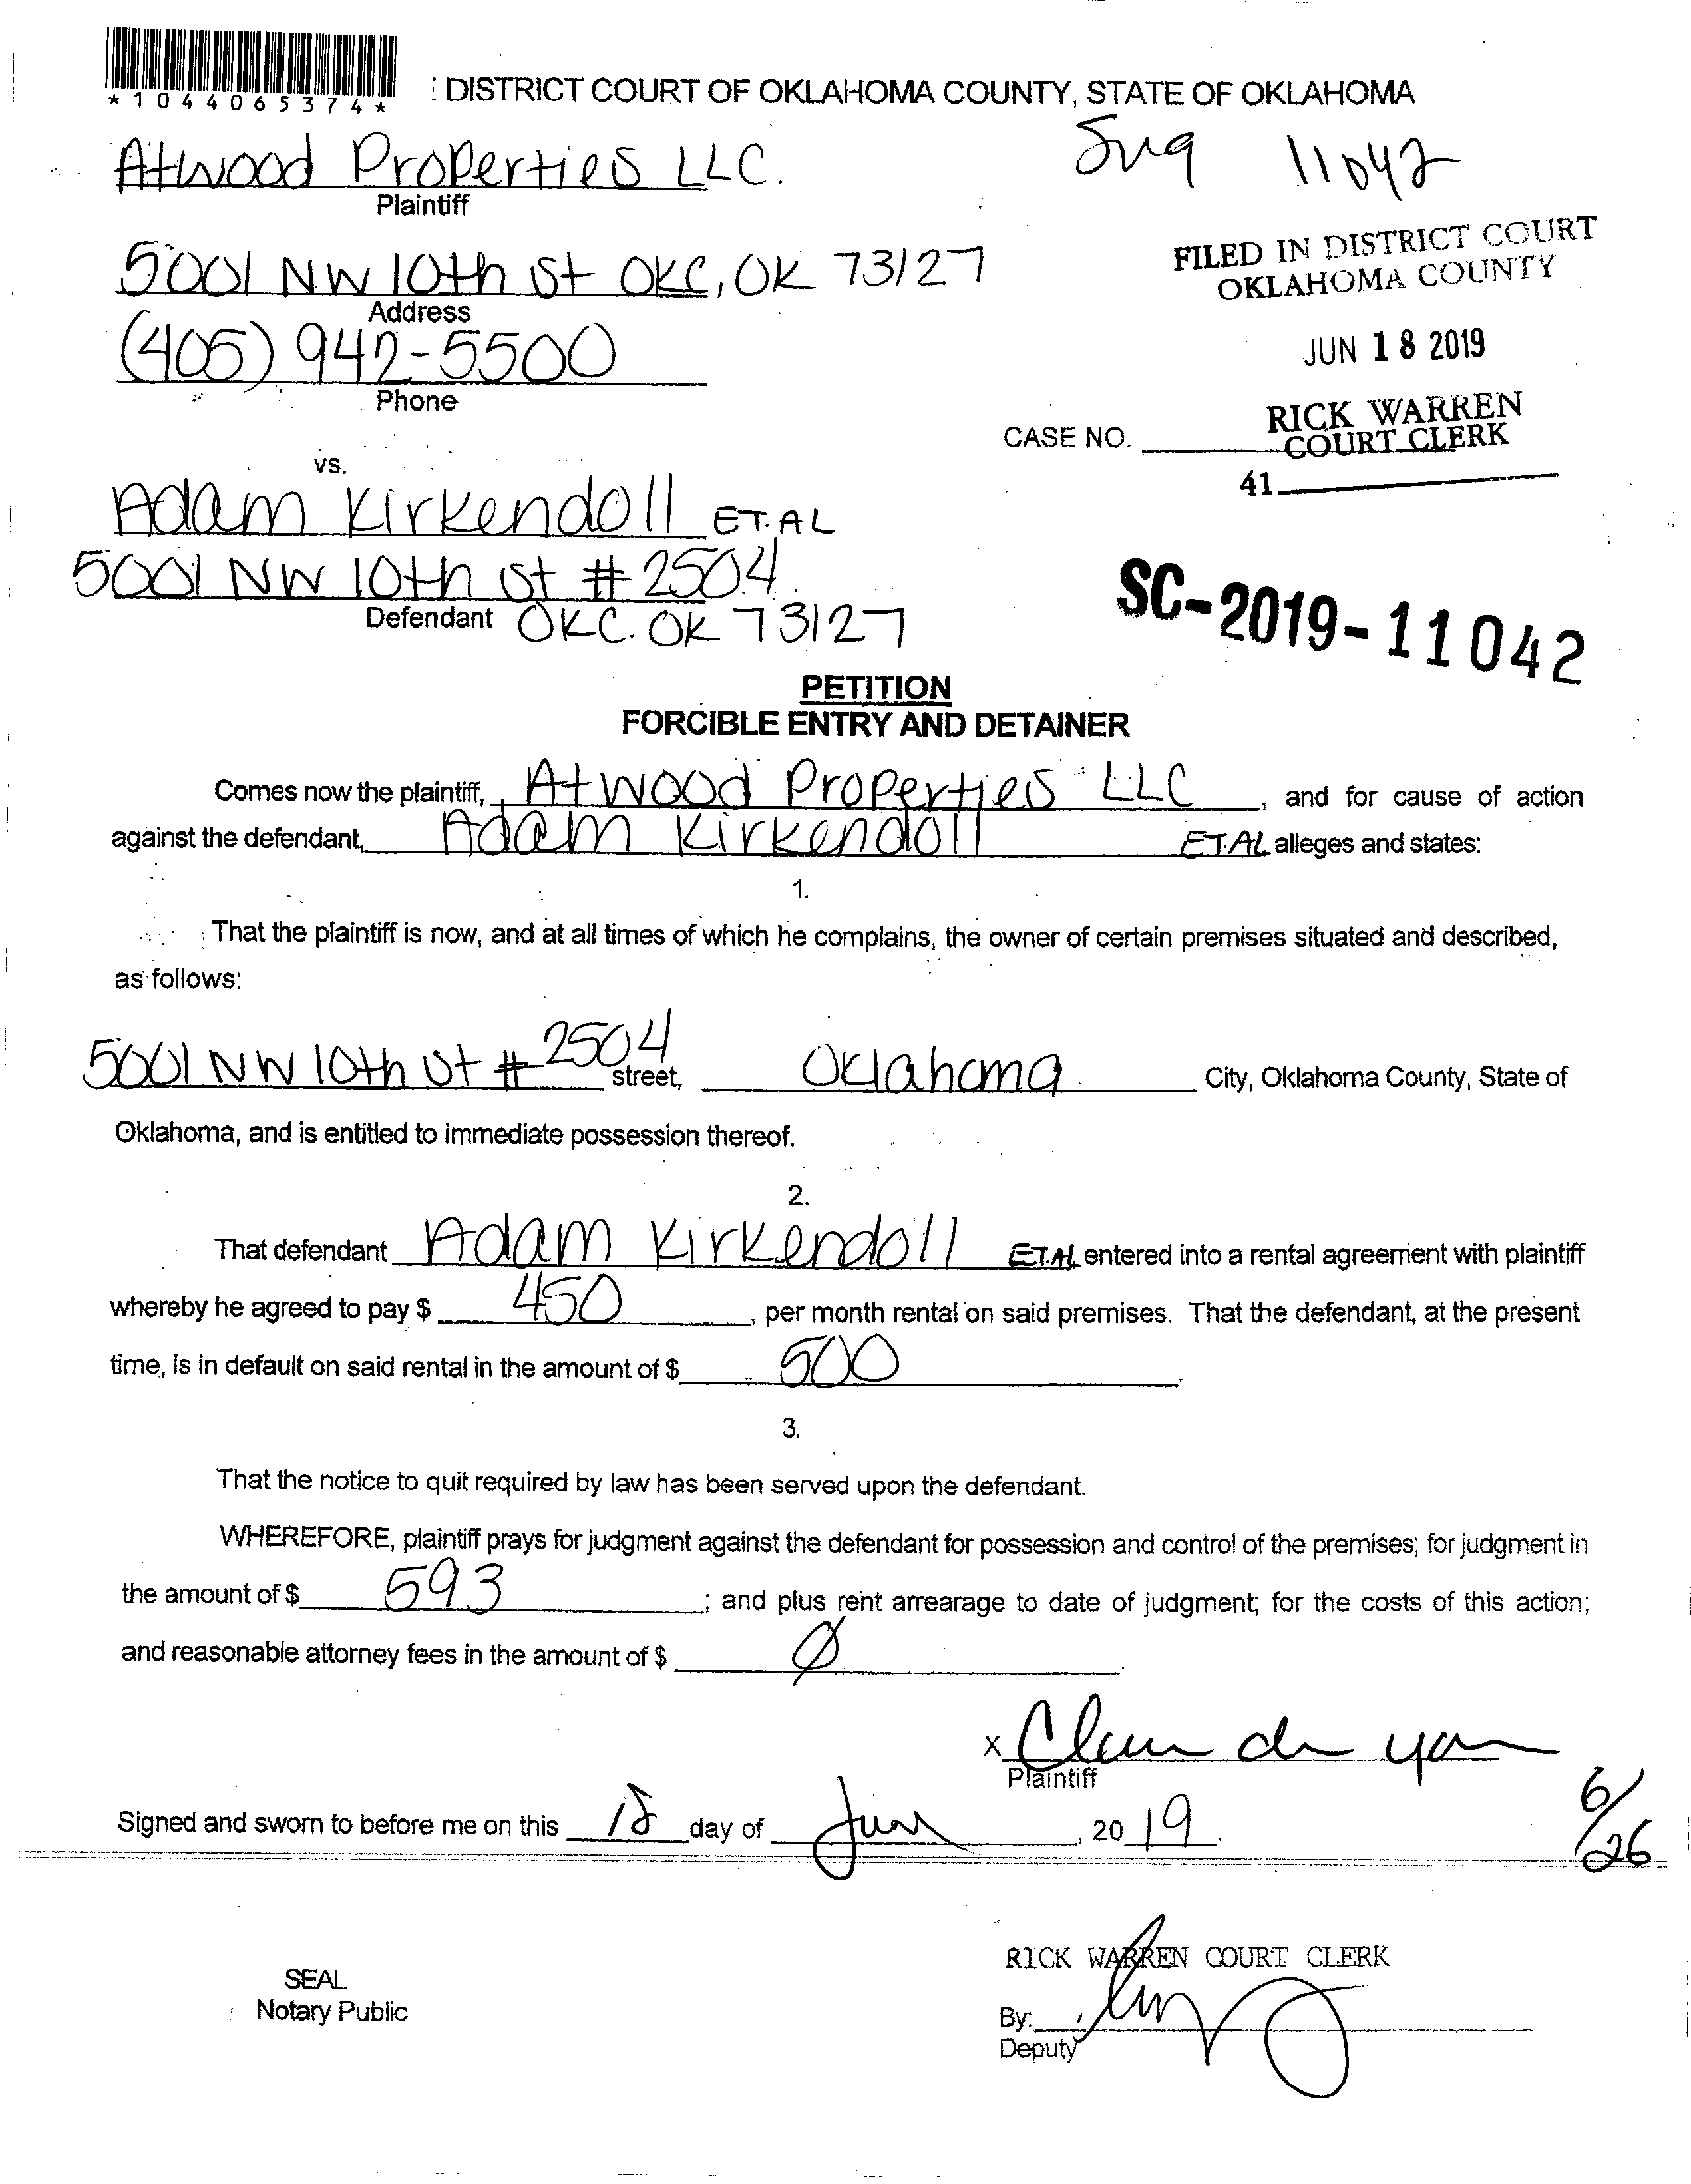 *1044065374*
: DISTRICT COURT OF OKLAHOMA COUNTY, STATE OF OKLAHOMA
Atwood Properties LLC.
11042
Plaintiff
5001 NW 10th St OKC, OK 73127
Address
FILED IN DISTRICT COURT
OKLAHOMA COUNTY
(405) 942-5500
Phone
JUN 18 2019
RICK WARREN
COURT CLERK
CASE NO.
41
vs.
Adam Kirkendoll ET.AL
5001 NW 10th St # 2504
Defendant OKC. OK 73127
SC-2019-11042
PETITION
FORCIBLE ENTRY AND DETAINER
Comes now the plaintiff, Atwood Properties LLC, and for cause of action
against the defendant, Adam Kirkendoll ET.AL alleges and states:
1.
That the plaintiff is now, and at all times of which he complains, the owner of certain premises situated and described,
as follows:
5001 NW 10th St # 2504 street, Oklahoma City, Oklahoma County, State of
Oklahoma, and is entitled to immediate possession thereof.
2.
That defendant Adam Kirkendoll ET.AL entered into a rental agreement with plaintiff
whereby he agreed to pay $ 450, per month rental on said premises. That the defendant, at the present
time, is in default on said rental in the amount of $ 500.
3.
That the notice to quit required by law has been served upon the defendant.
WHEREFORE, plaintiff prays for judgment against the defendant for possession and control of the premises; for judgment in
the amount of $ 593; and plus rent arrearage to date of judgment; for the costs of this action;
and reasonable attorney fees in the amount of $ Ø
X
Plaintiff
Signed and sworn to before me on this 18 day of Jun, 20 19.
6/26
RICK WARREN COURT CLERK
SEAL
Notary Public
By:
Deputy